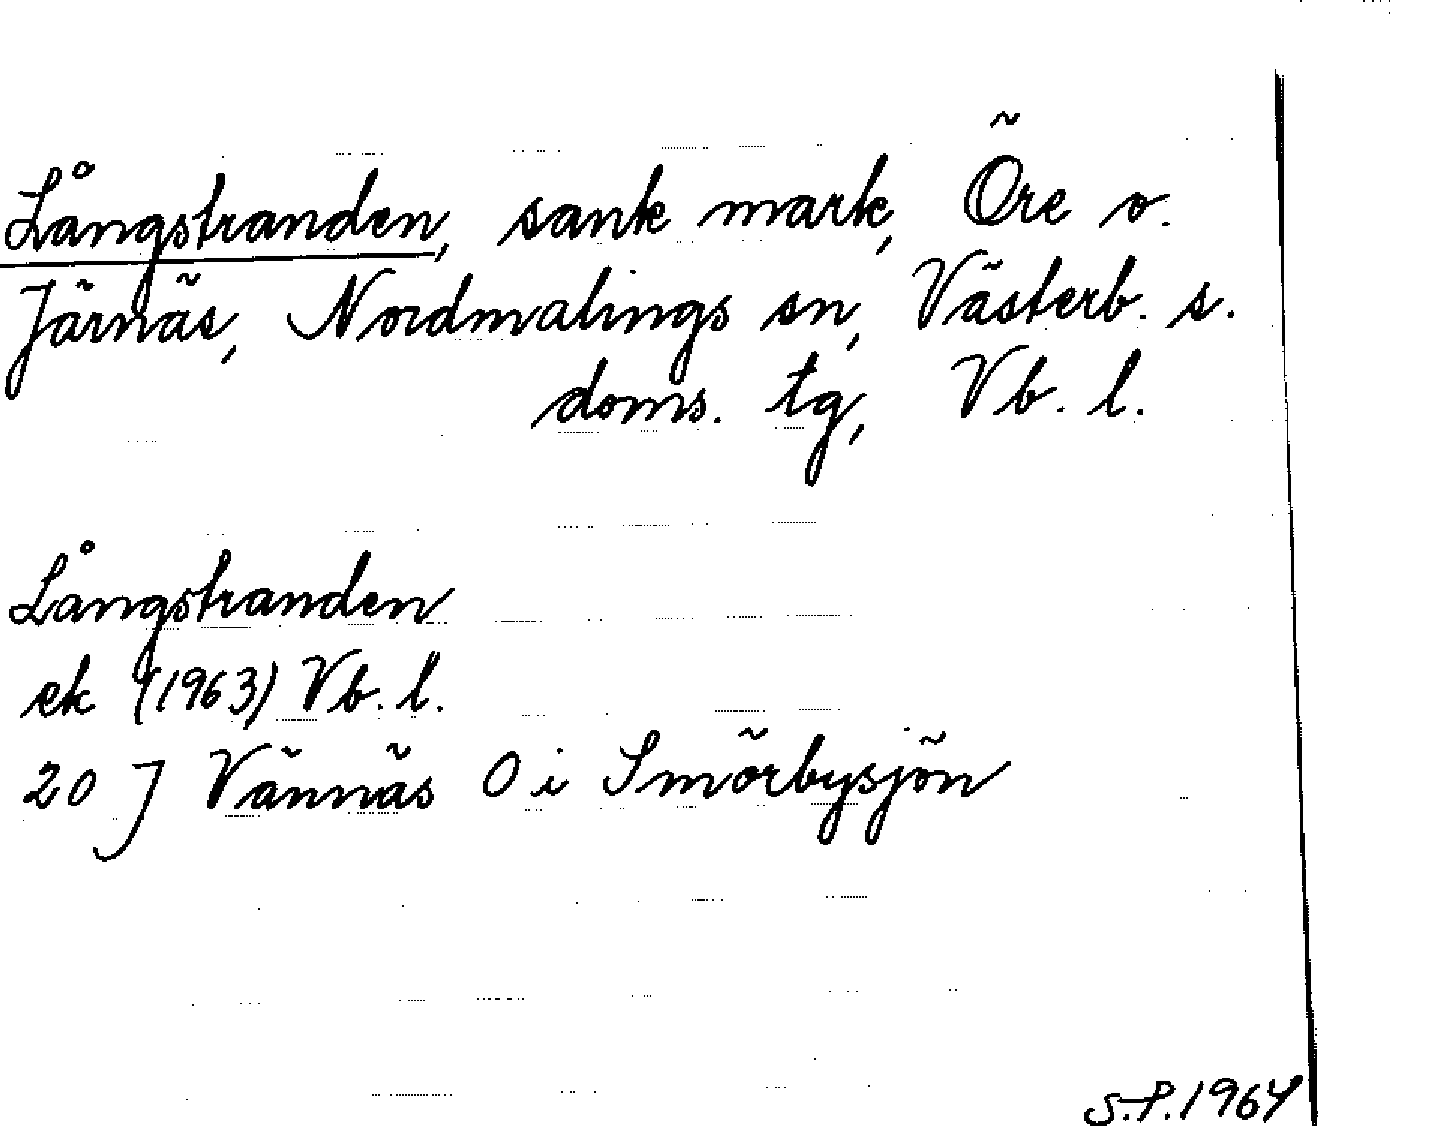 Långstranden, sank mark, Öre o.
Järnäs, Nordmalings sn, Västerb. s.
doms. tg, Vb. l.
Långstranden
ek (1963) Vb. l.
20 J Vännäs O i Smörbysjön
S.P. 1964